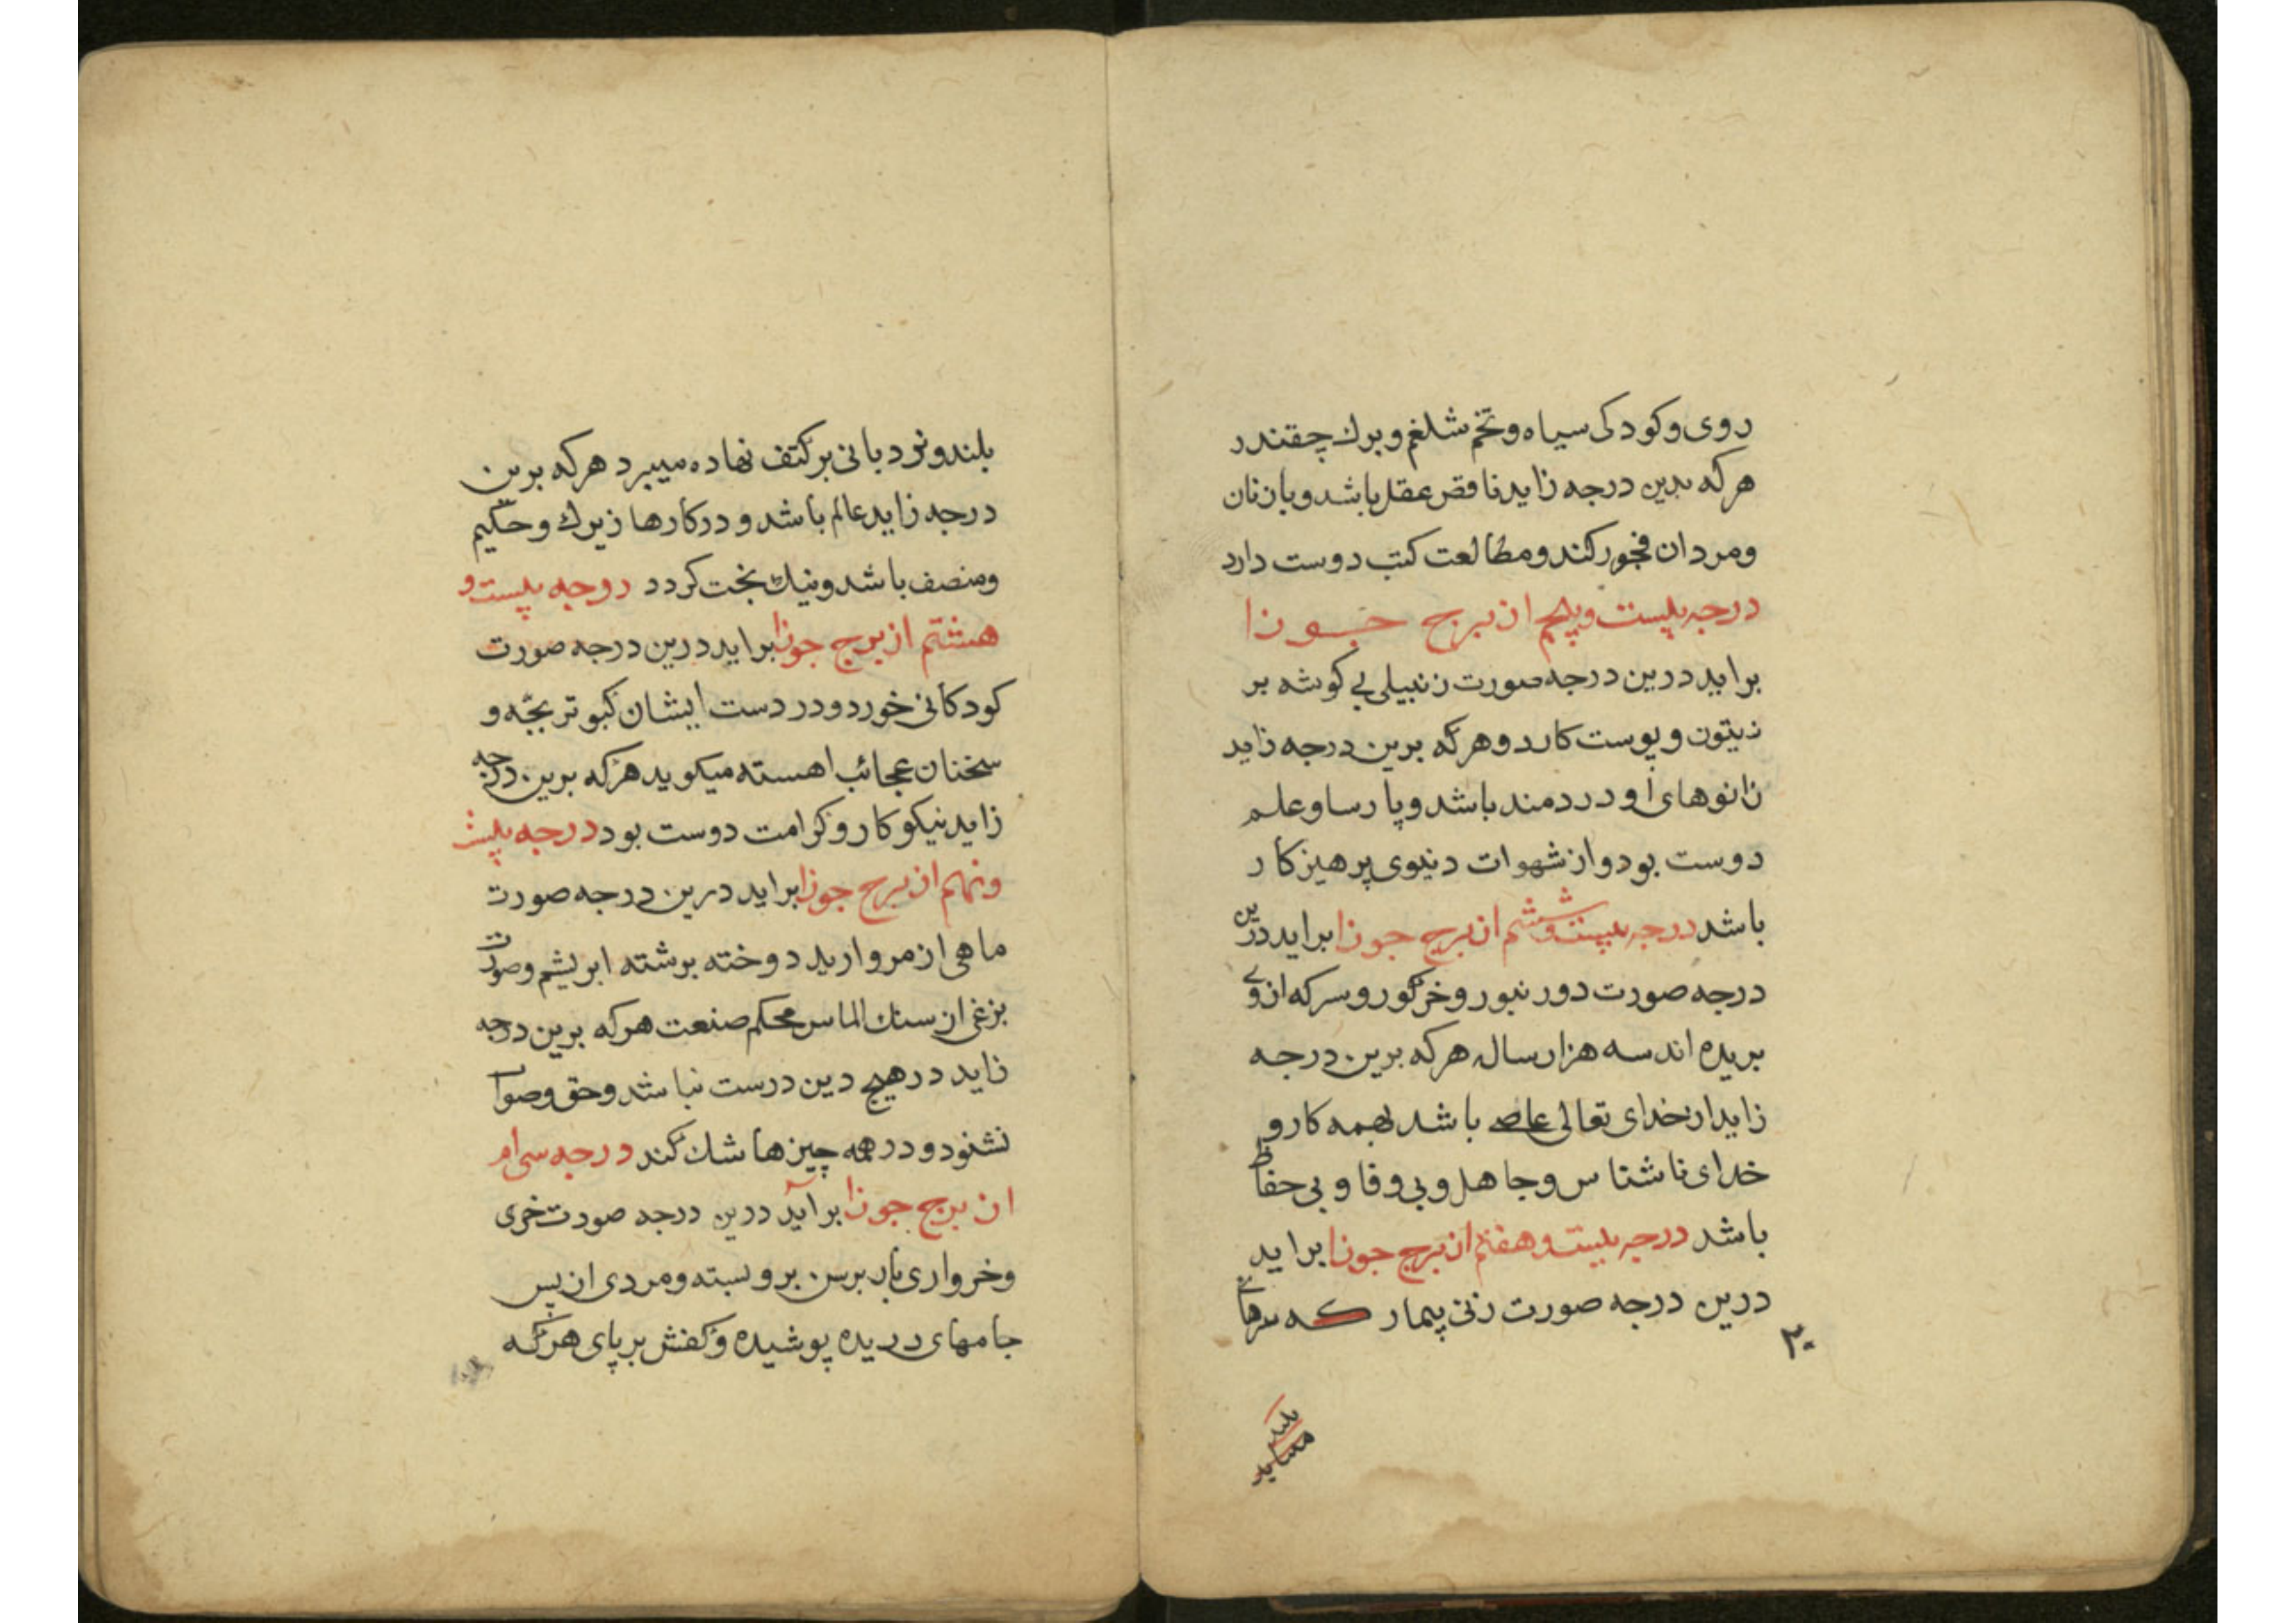 روی و کودکی سیاه و تخم شلغم و برك چقندر
هر که بدین درجه زاید ناقص عقل باشد و با زنان
و مردان فجور کند و مطالعت کتب دوست دارد
درجه بیست و پنجم از برج جوزا
براید درین درجه صورت زنبیلی بی کوشه بر
زیتون و پوست کارد و هر که برین درجه زاید
زانوهای او دردمند باشد و پارسا و علم
دوست بود و از شهوات دنیوی پرهیزکار
باشد درجه بیست و ششم از برج جوزا براید درین
درجه صورت دو زنبور و خرکور و سرکه ازوی
بریده اند سه هزار سال هر که برین درجه
زاید از خدای تعالی عاصی باشد بهمه کار و
خدای ناشناس و جاهل و بی وفا و بی حفاظ
باشد درجه بیست و هفتم از برج جوزا براید
درین درجه صورت زنی بیمار که سرهای
۲۰
بلند
بلند و نردبانی بر کتف نهاده میبرد هر که برین
درجه زاید عالم باشد و در کارها زیرك و حکیم
و منصف باشد و نیك بخت کردد درجه بیست و
هشتم از برج جوزا براید درین درجه صورت
کودکانی خورد و در دست ایشان کبوتر بچّه و
سخنان عجائب اهسته میکوید هر که برین درجه
زاید نیکوکار و کرامت دوست بود درجه بیست
و نهم از برج جوزا براید درین درجه صورت
ماهی از مروارید دوخته برشته ابریشم و صورت
بزغی از سنك الماس محکم صنعت هر که برین درجه
زاید در هیچ دین درست نباشد و حق و صواب
نشنود و در همه چیزها شك کند درجه سی ام
از برج جوزا براید درین درجه صورت خری
و خرواری بار برس برو بسته و مردی از پس
جامهای دریده پوشیده و کفش بر پای هر که